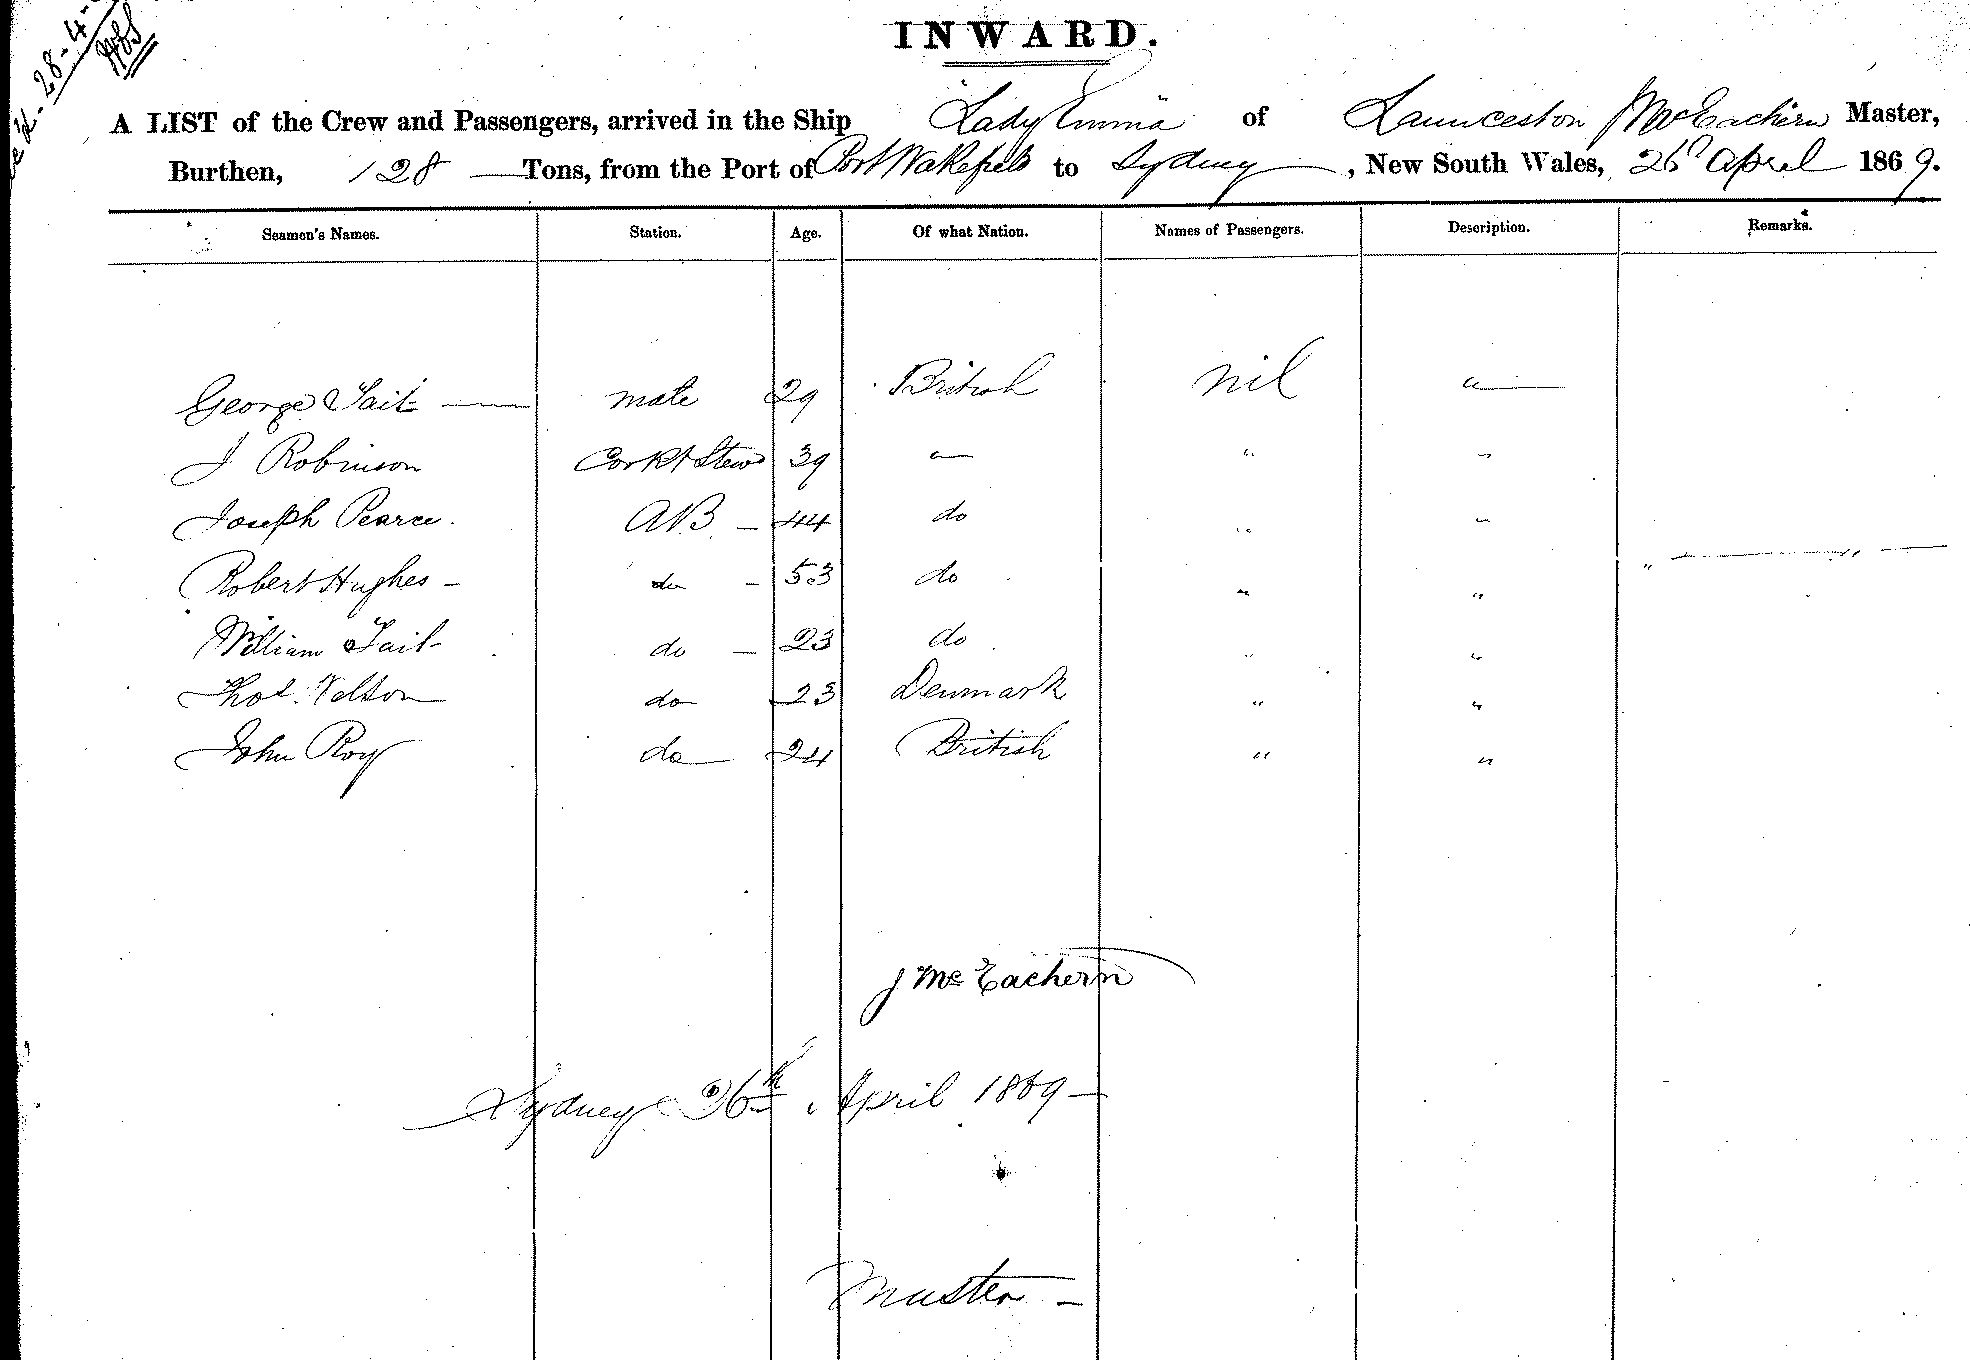 28-4-
INWARD.
A LIST of the Crew and Passengers, arrived in the Ship Lady Emma of Launceston J McEachern Master,
Burthen, 128 Tons, from the Port of Port Wakefield to Sydney, New South Wales, 26 April 1869.
Seamen's Names. Station. Age. Of what Nation. Names of Passengers. Description. Remarks.
George Tait mate 29 British nil "
J Robinson Cook & Stewd 39 " " "
Joseph Pearce. AB 44 do " "
Robert Hughes do 53 do " " " "
William Tait do 23 do " "
do 23 Denmark " "
John Roy do 24 British " "
J McEachern
Sydney 26th April 1869
Master